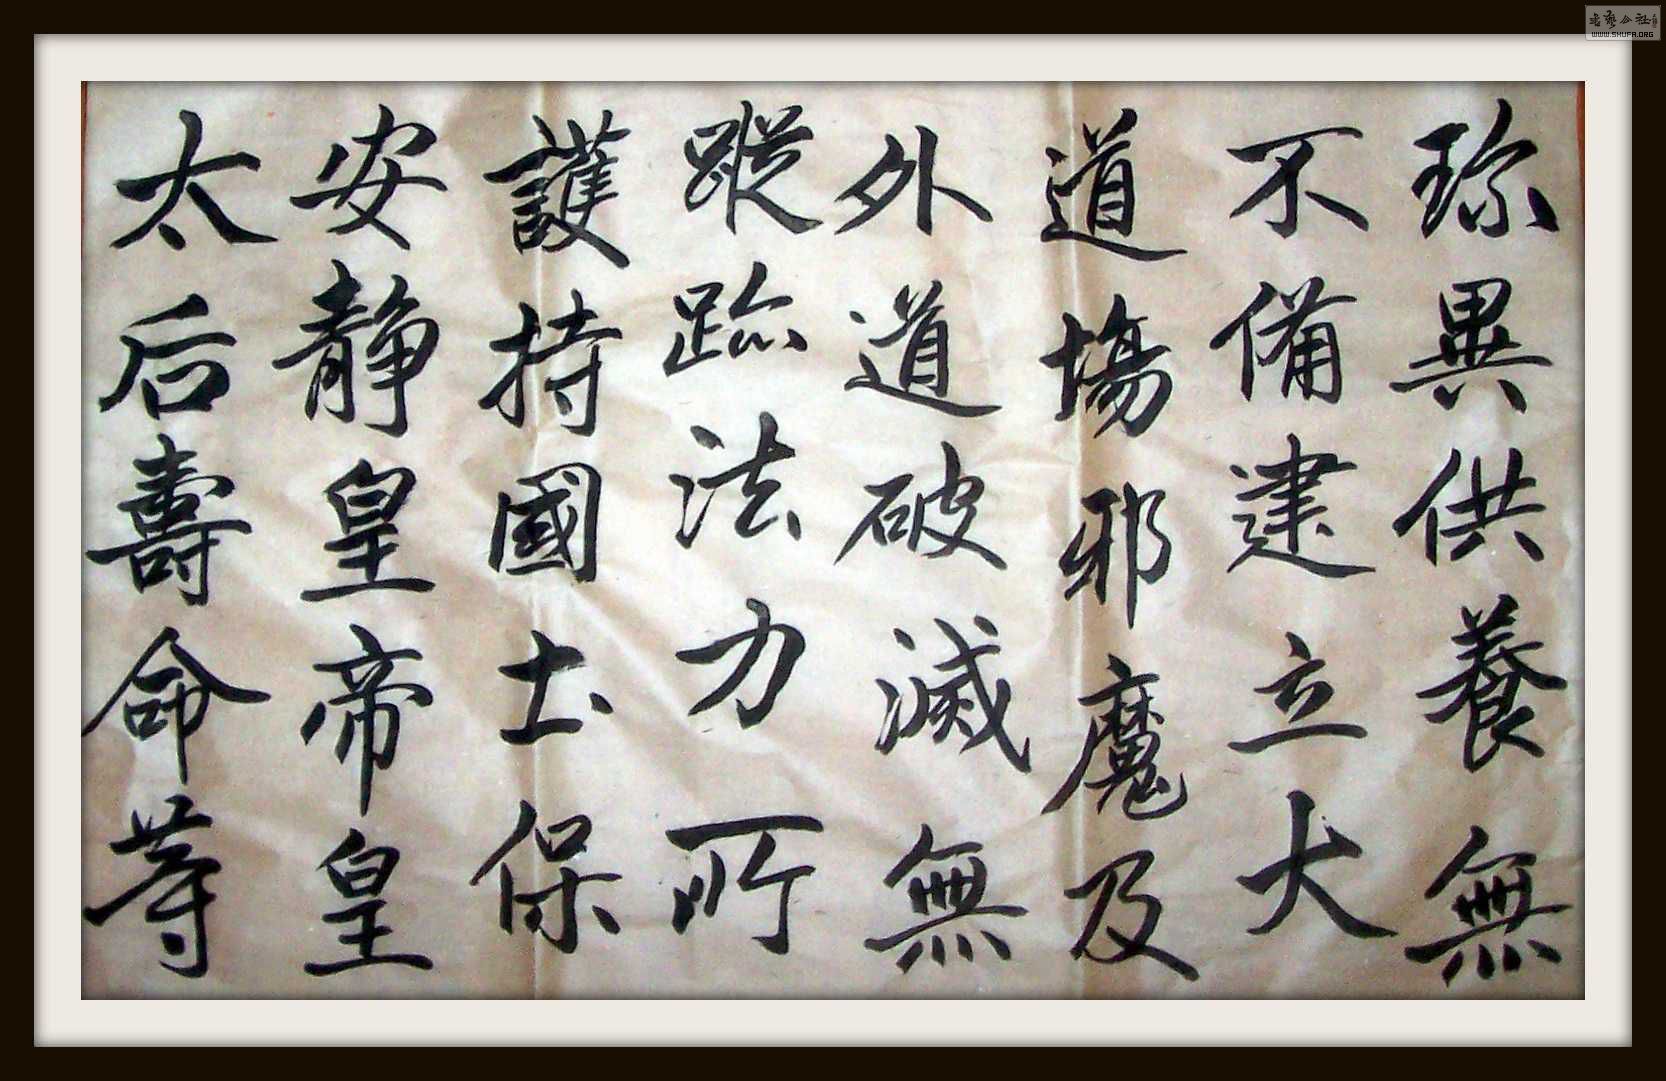 珎異供養無
不備建立大
道場邪魔及
外道破滅無
蹤跡法力所
護持國土保
安静皇帝皇
太后壽命等
WWW.SHUFA.ORG